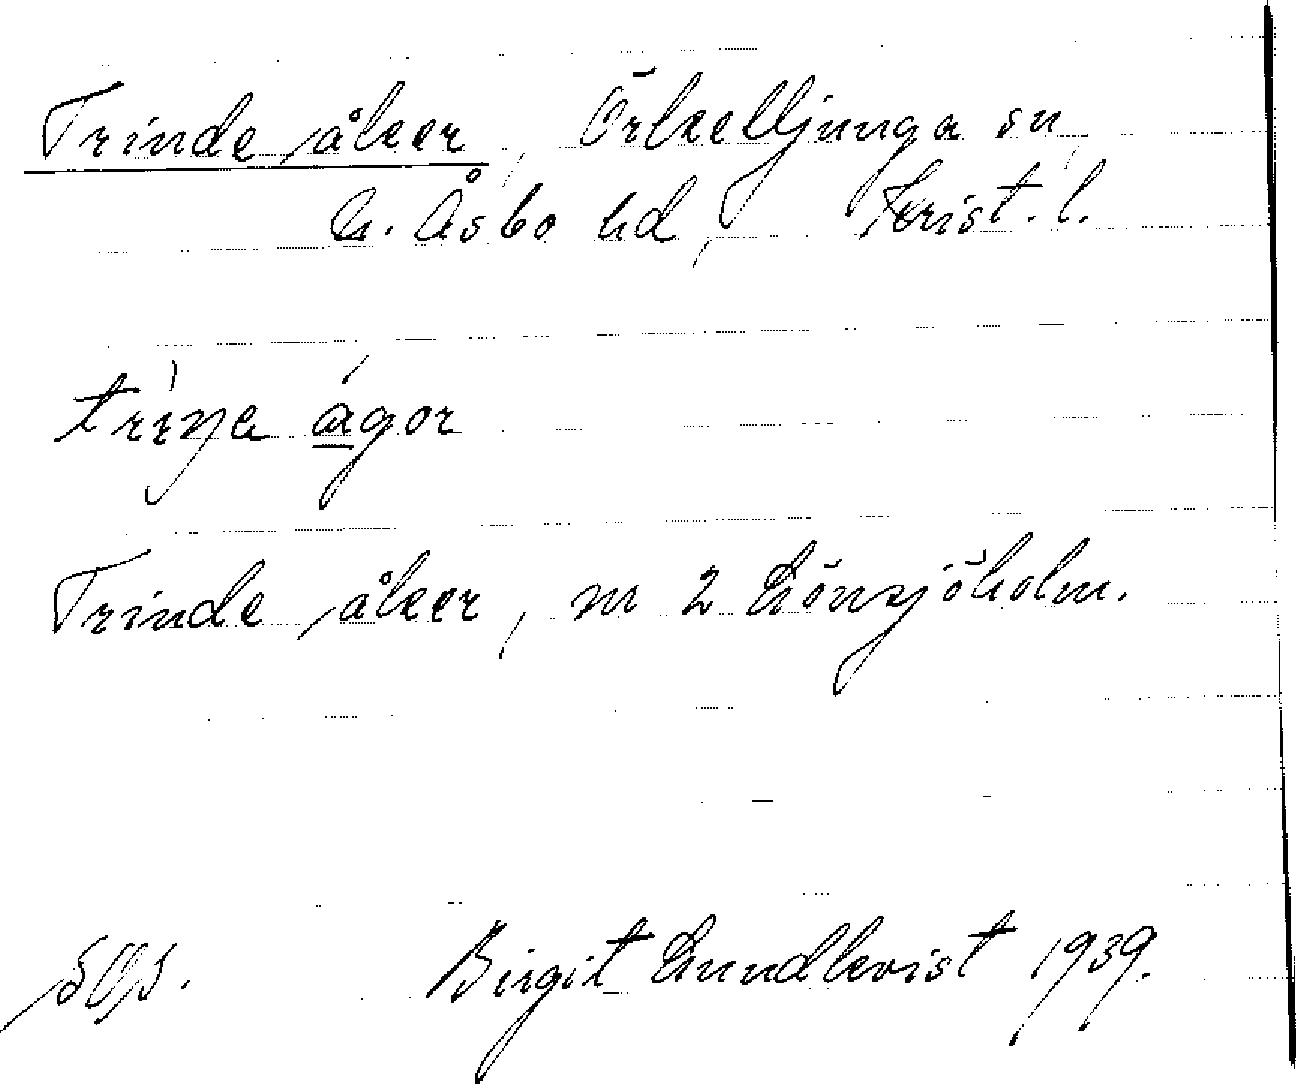 Trinde åker, Örkelljunga sn,
N. Åsbo hd, Krist. l.
Trinde åker, m 2 Lönsjöholm.
Birgit Lundkvist 1939.